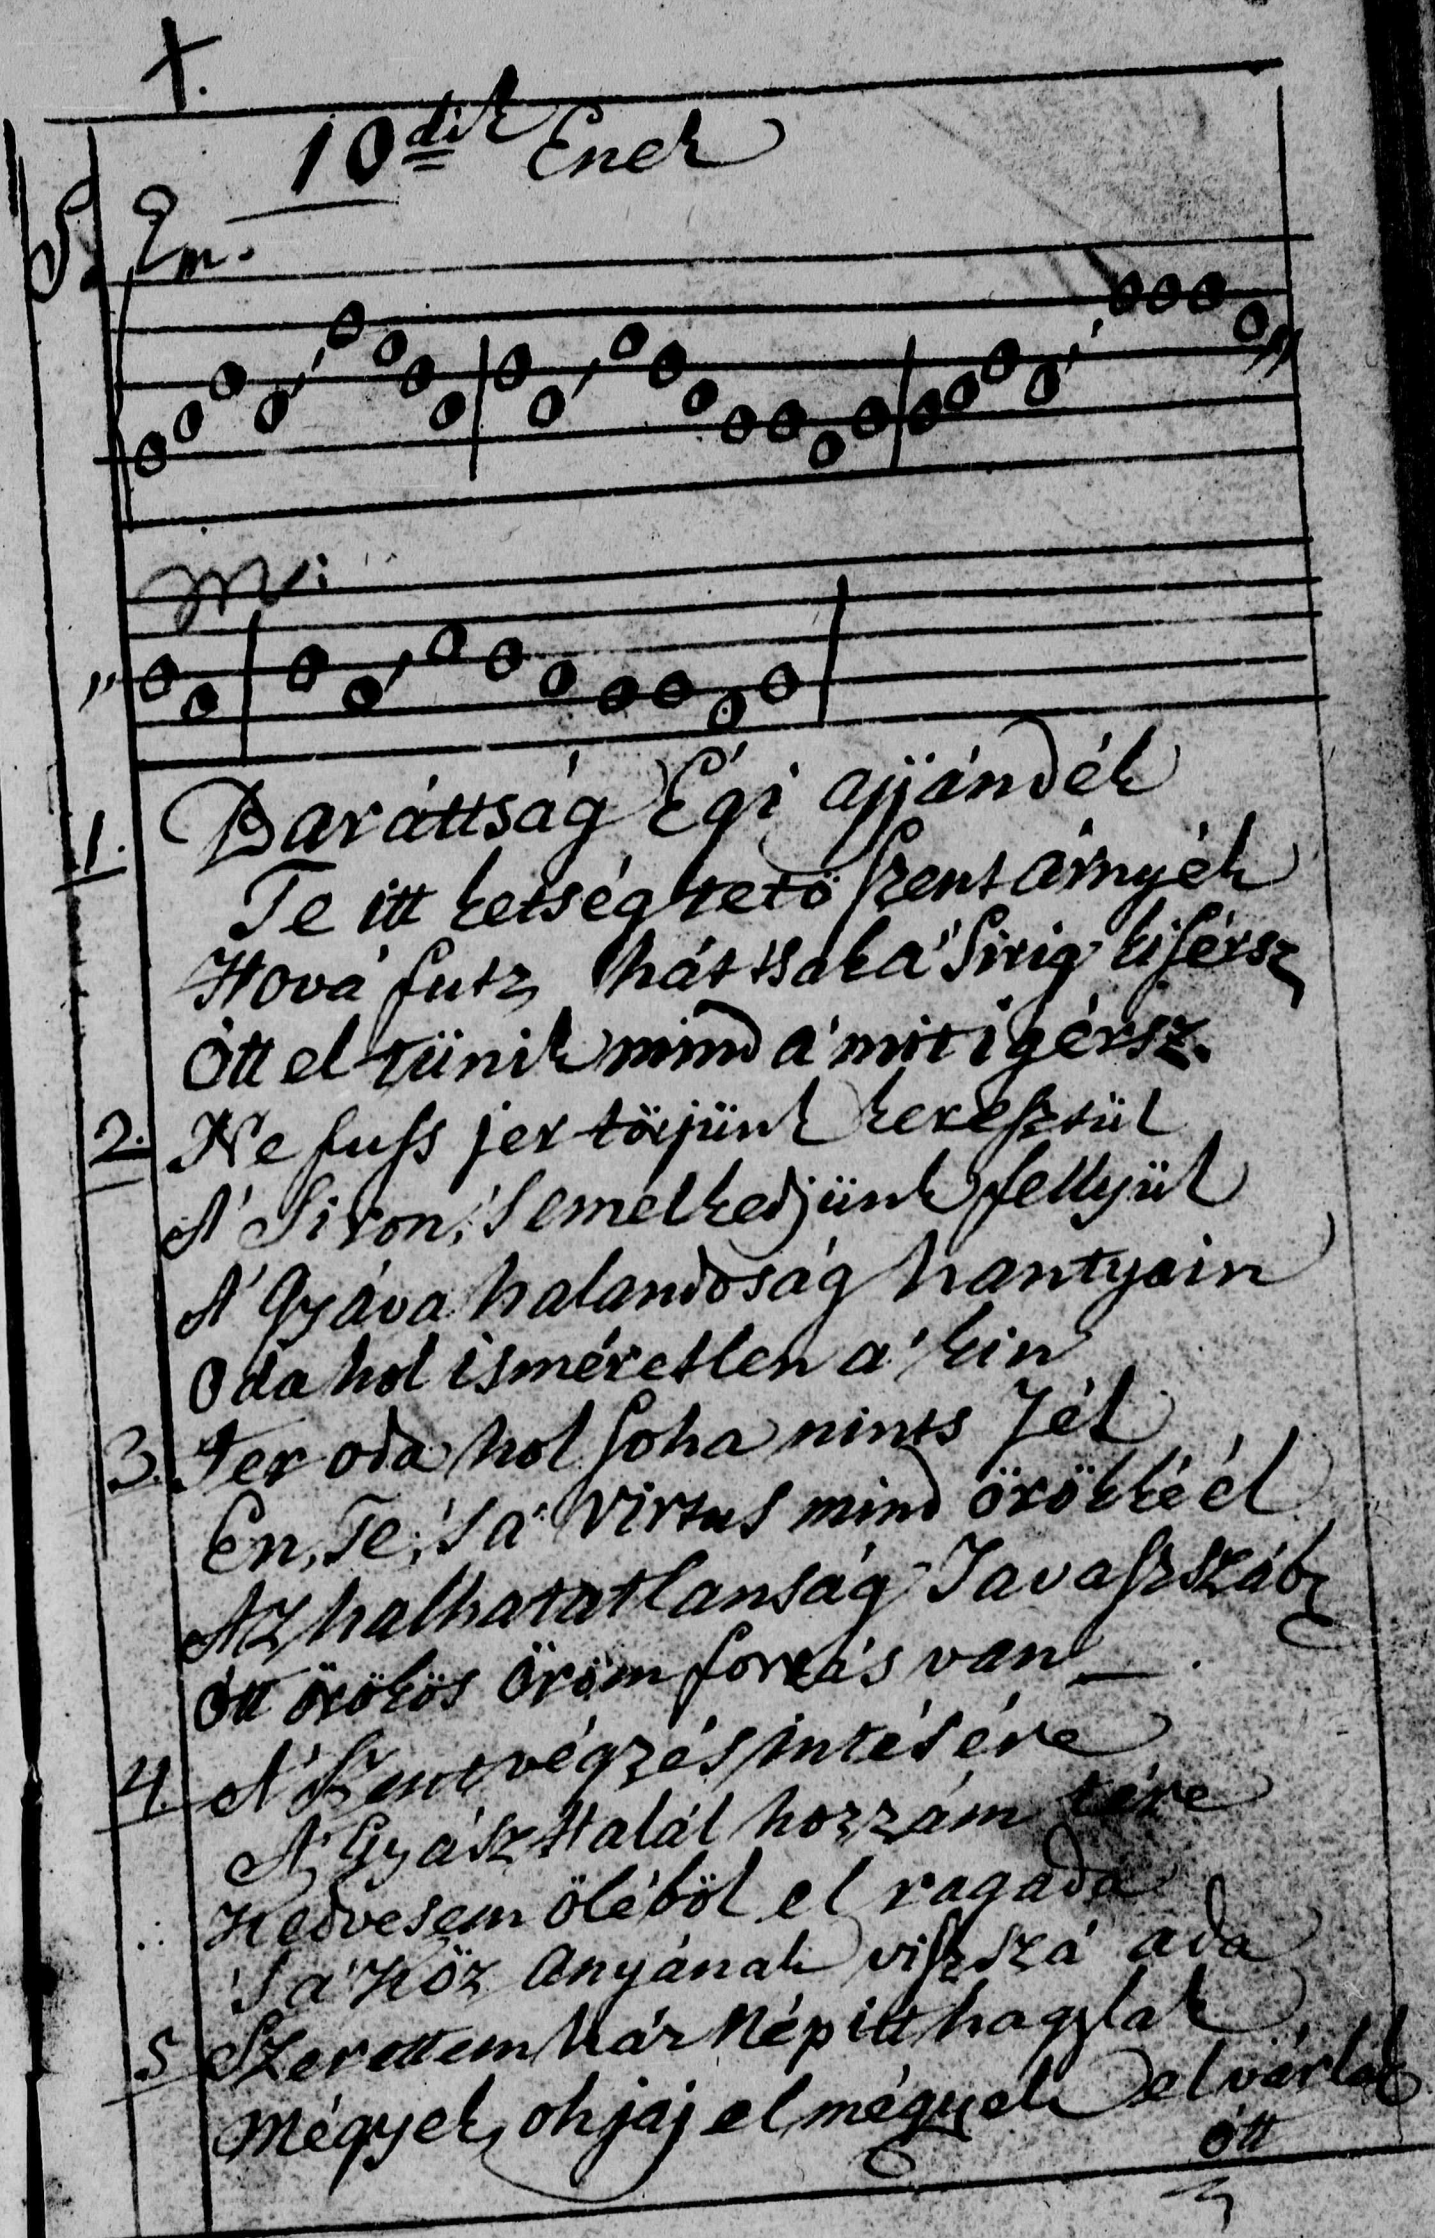 X.
10dik Enek
S. Em.
M:
1. Baráttság Égi ajjándék
Te itt ketségtető szent árnyék
Hová futz, hát tsak a' Sirig kisérsz
Ott el tünik mind a' mit igérsz.
2. Ne fuss jer törjünk keresztül
A' Siron, 's emelkedjünk fellyül
A' Gyáva halandoság hantyain
Oda hol isméretlen a' kin
3. Jer oda hol soha nints Jél
En, Te, 's a' Virtus mind örökké él
Az halhatatlanság
Ott örökös Öröm forrás van
4. A' Szent végzés intésére
A' Gyász Halál hozzám tére
Kedvesem öléböl el ragada
's a' Köz Anyának viszszá ada
5 Szerettem ház Nép itt hagylak
Mégyek, oh jaj el mégyek el várlak
ott